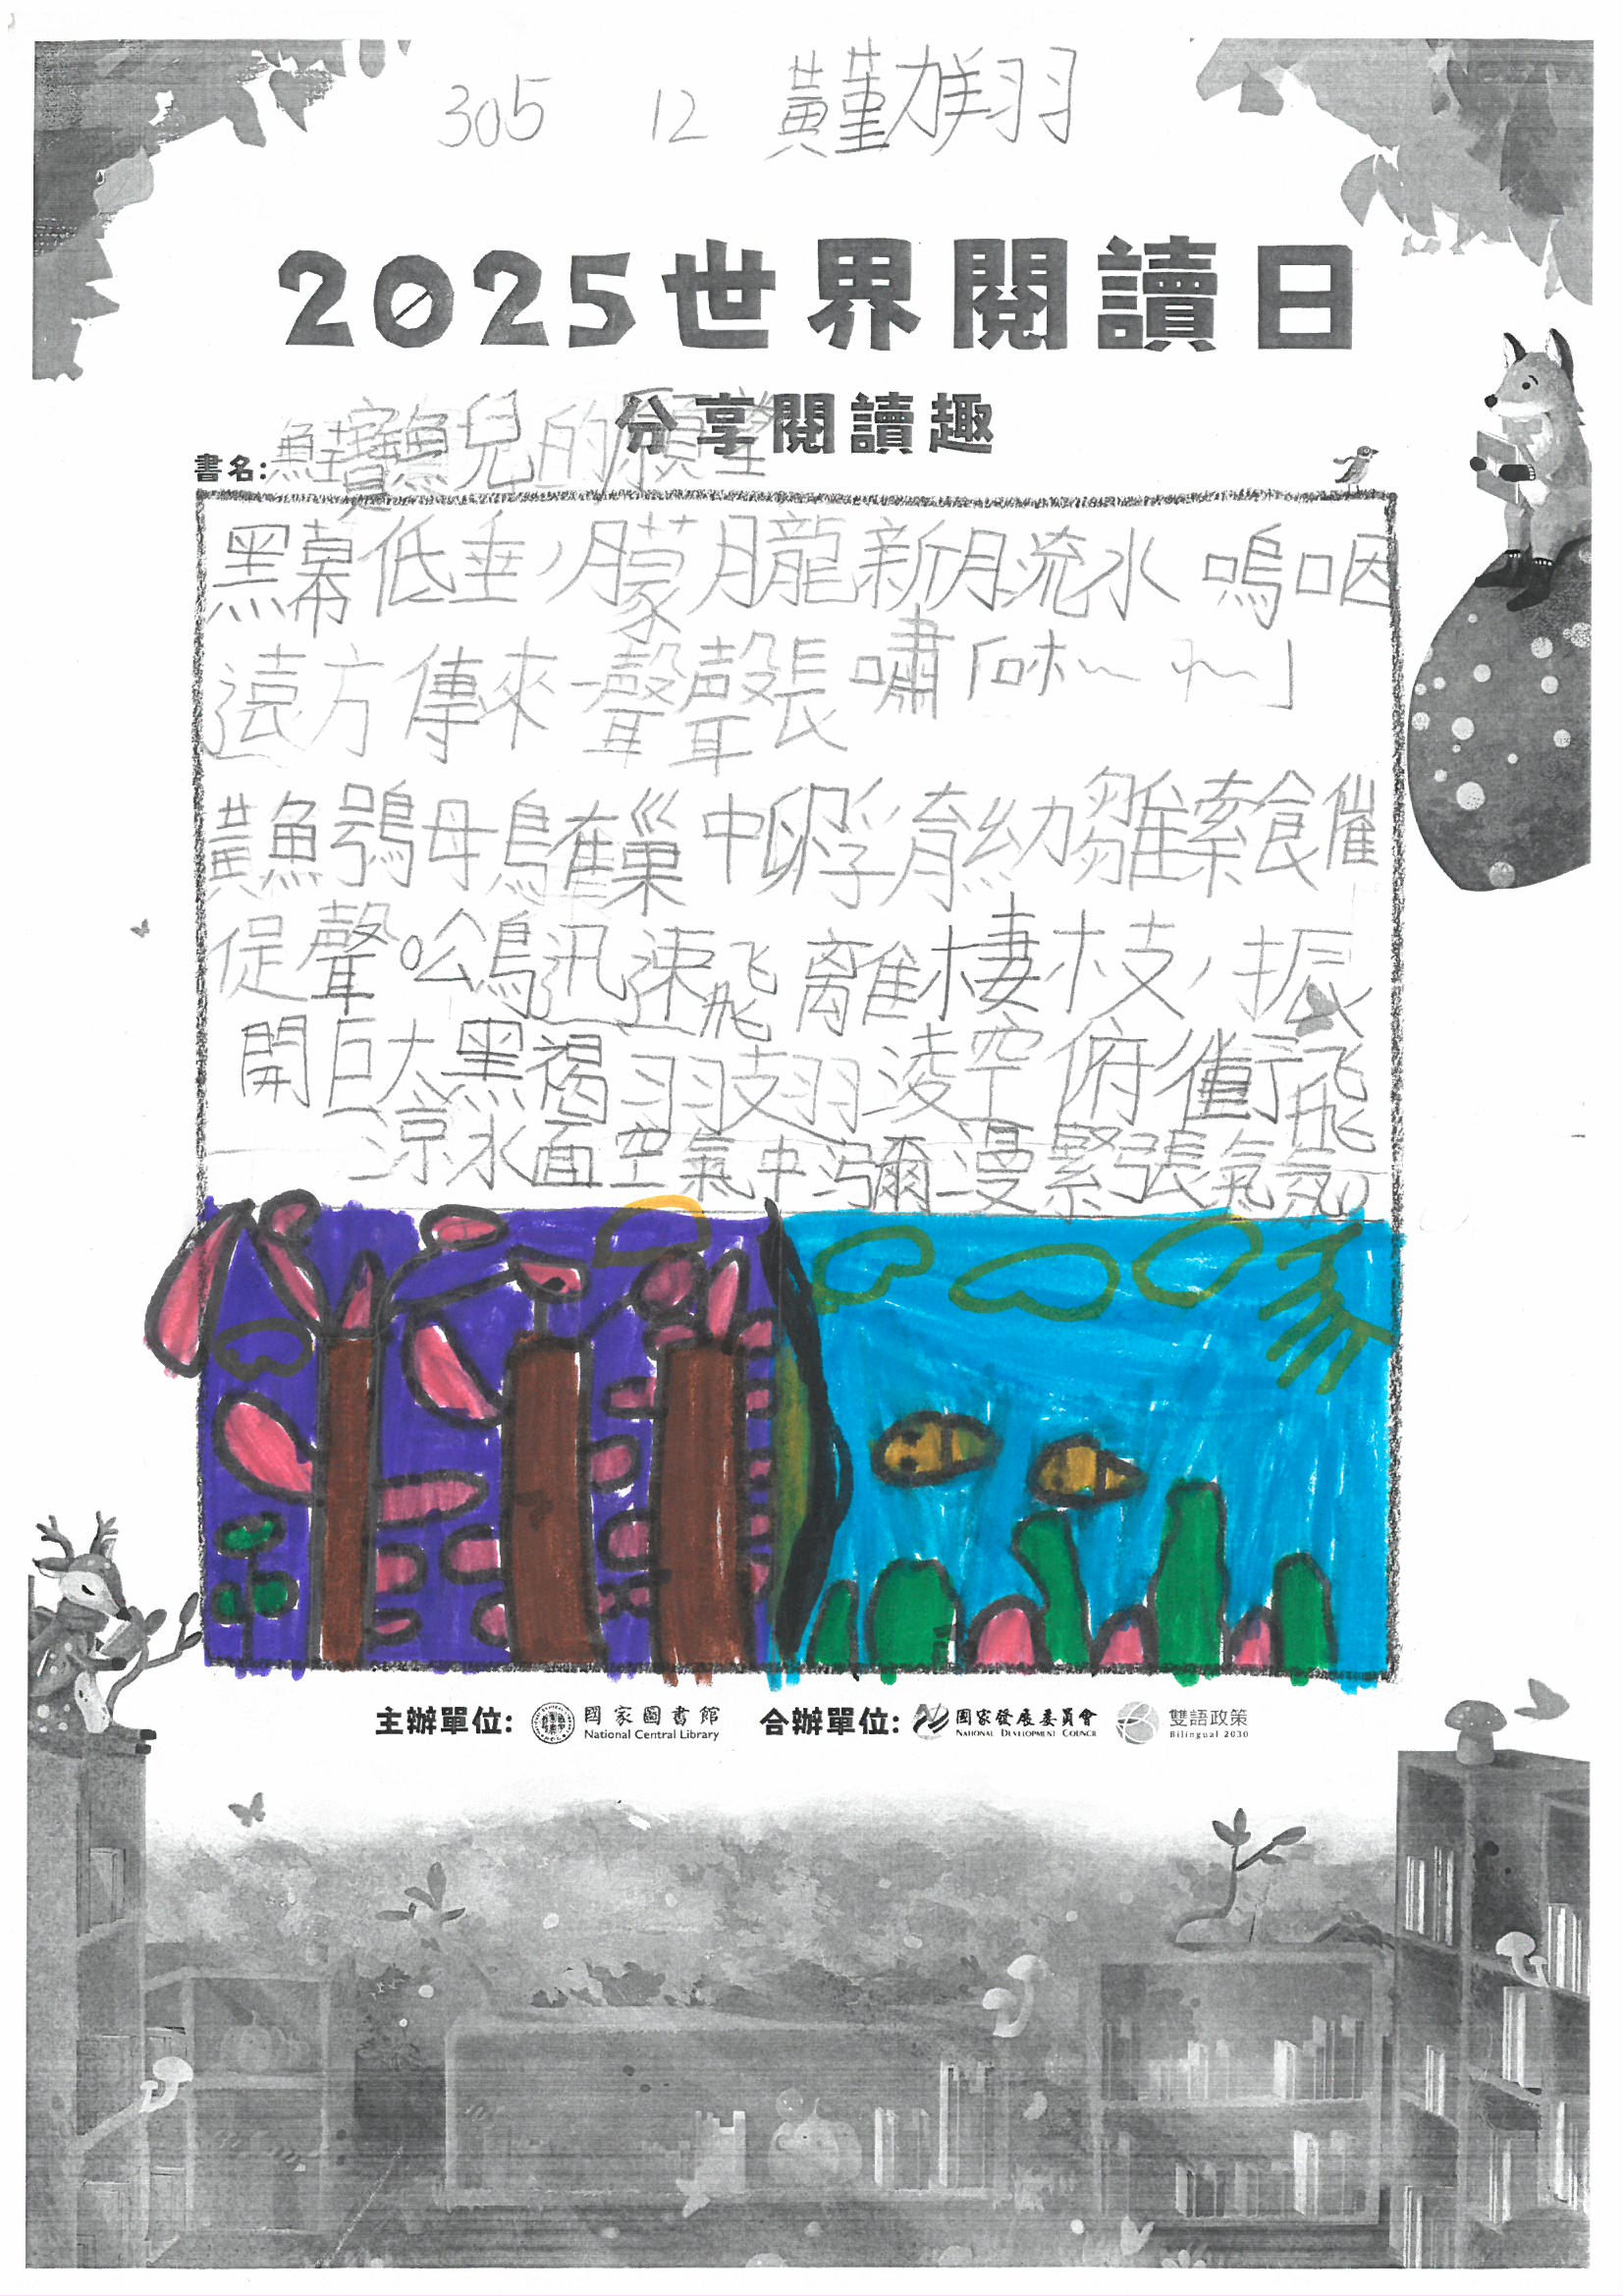 305 12 黃勤翔
2025世界閱讀日
分享閱讀趣
書名:鮭寶魚兒的願望
黑幕低垂,朦朧新月流水 嗚咽
遠方傳來聲聲長嘯「咻~ ~」
黃魚鴞母鳥在巢中孵育幼雛索食催
促聲。公鳥迅速飛離棲枝,振
開巨大黑褐羽翅凌空俯衝飛
涼水面空氣中瀰漫緊張氣氛
主辦單位: 國家圖書館 合辦單位: 國家發展委員會 雙語政策
National Central Library NATIONAL DEVELOPMENT COUNCIL Bilingual 2030